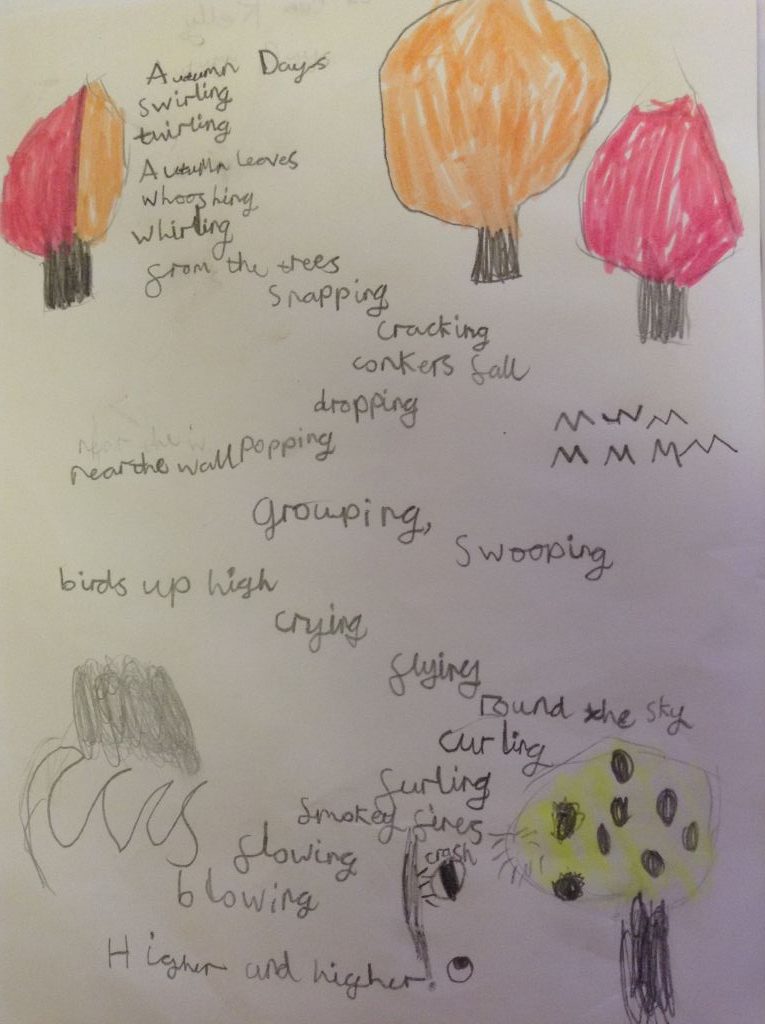 Autumn Days
swirling
twirling
Autumn leaves
whooshing
whirling
from the trees
snapping
cracking
conkers fall
dropping
popping
near the wall
grouping,
swooping
birds up high
crying
flying
round the sky
curling
furling
smokey fires
crash
flowing
blowing
Higher and higher.